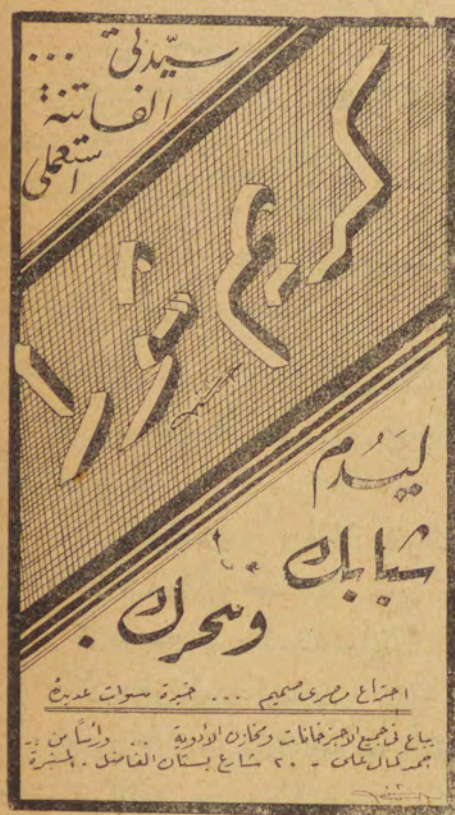 سيدتى ...
الفاتنة
استعملى
كريم نورا
ليَدُم
شبابك
وسحرك .
اختراع مصرى صميم ... خبرة سنوات عديدة
يباع فى جميع الاجزخانات ومخازن الأدوية ... ورأساً من
محمد كمال على - ٢٠ شارع بستان الفاضل . المنيرة